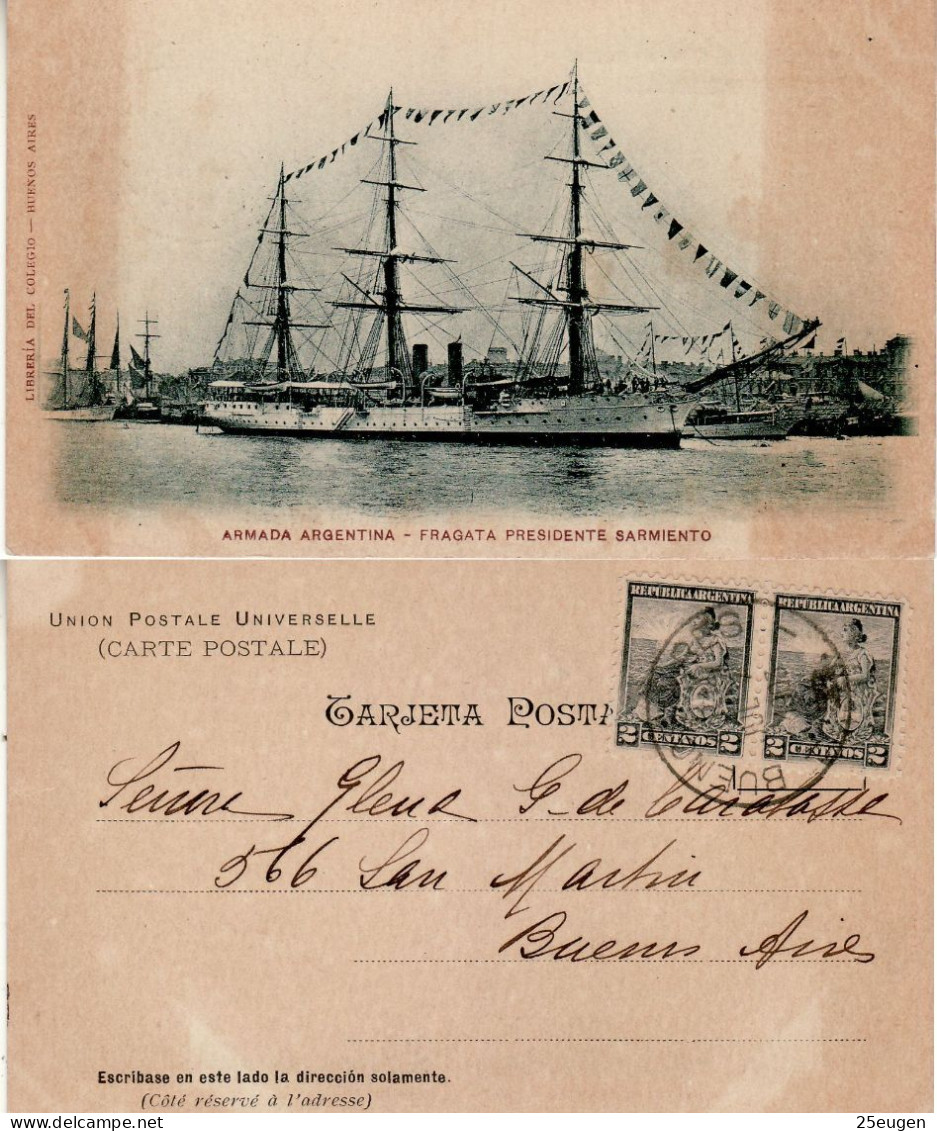 LIBRERÍA DEL COLEGIO — BUENOS AIRES
ARMADA ARGENTINA - FRAGATA PRESIDENTE SARMIENTO
UNION POSTALE UNIVERSELLE
(CARTE POSTALE)
TARJETA POSTA
REPÚBLICA ARGENTINA
2 CENTAVOS 2
REPÚBLICA ARGENTINA
2 CENTAVOS 2
BUENOS AIRES
Señora Elena G. de
566 San Martin
Buenos Aires
Escríbase en este lado la dirección solamente.
(Côté réservé à l'adresse)
25eugen